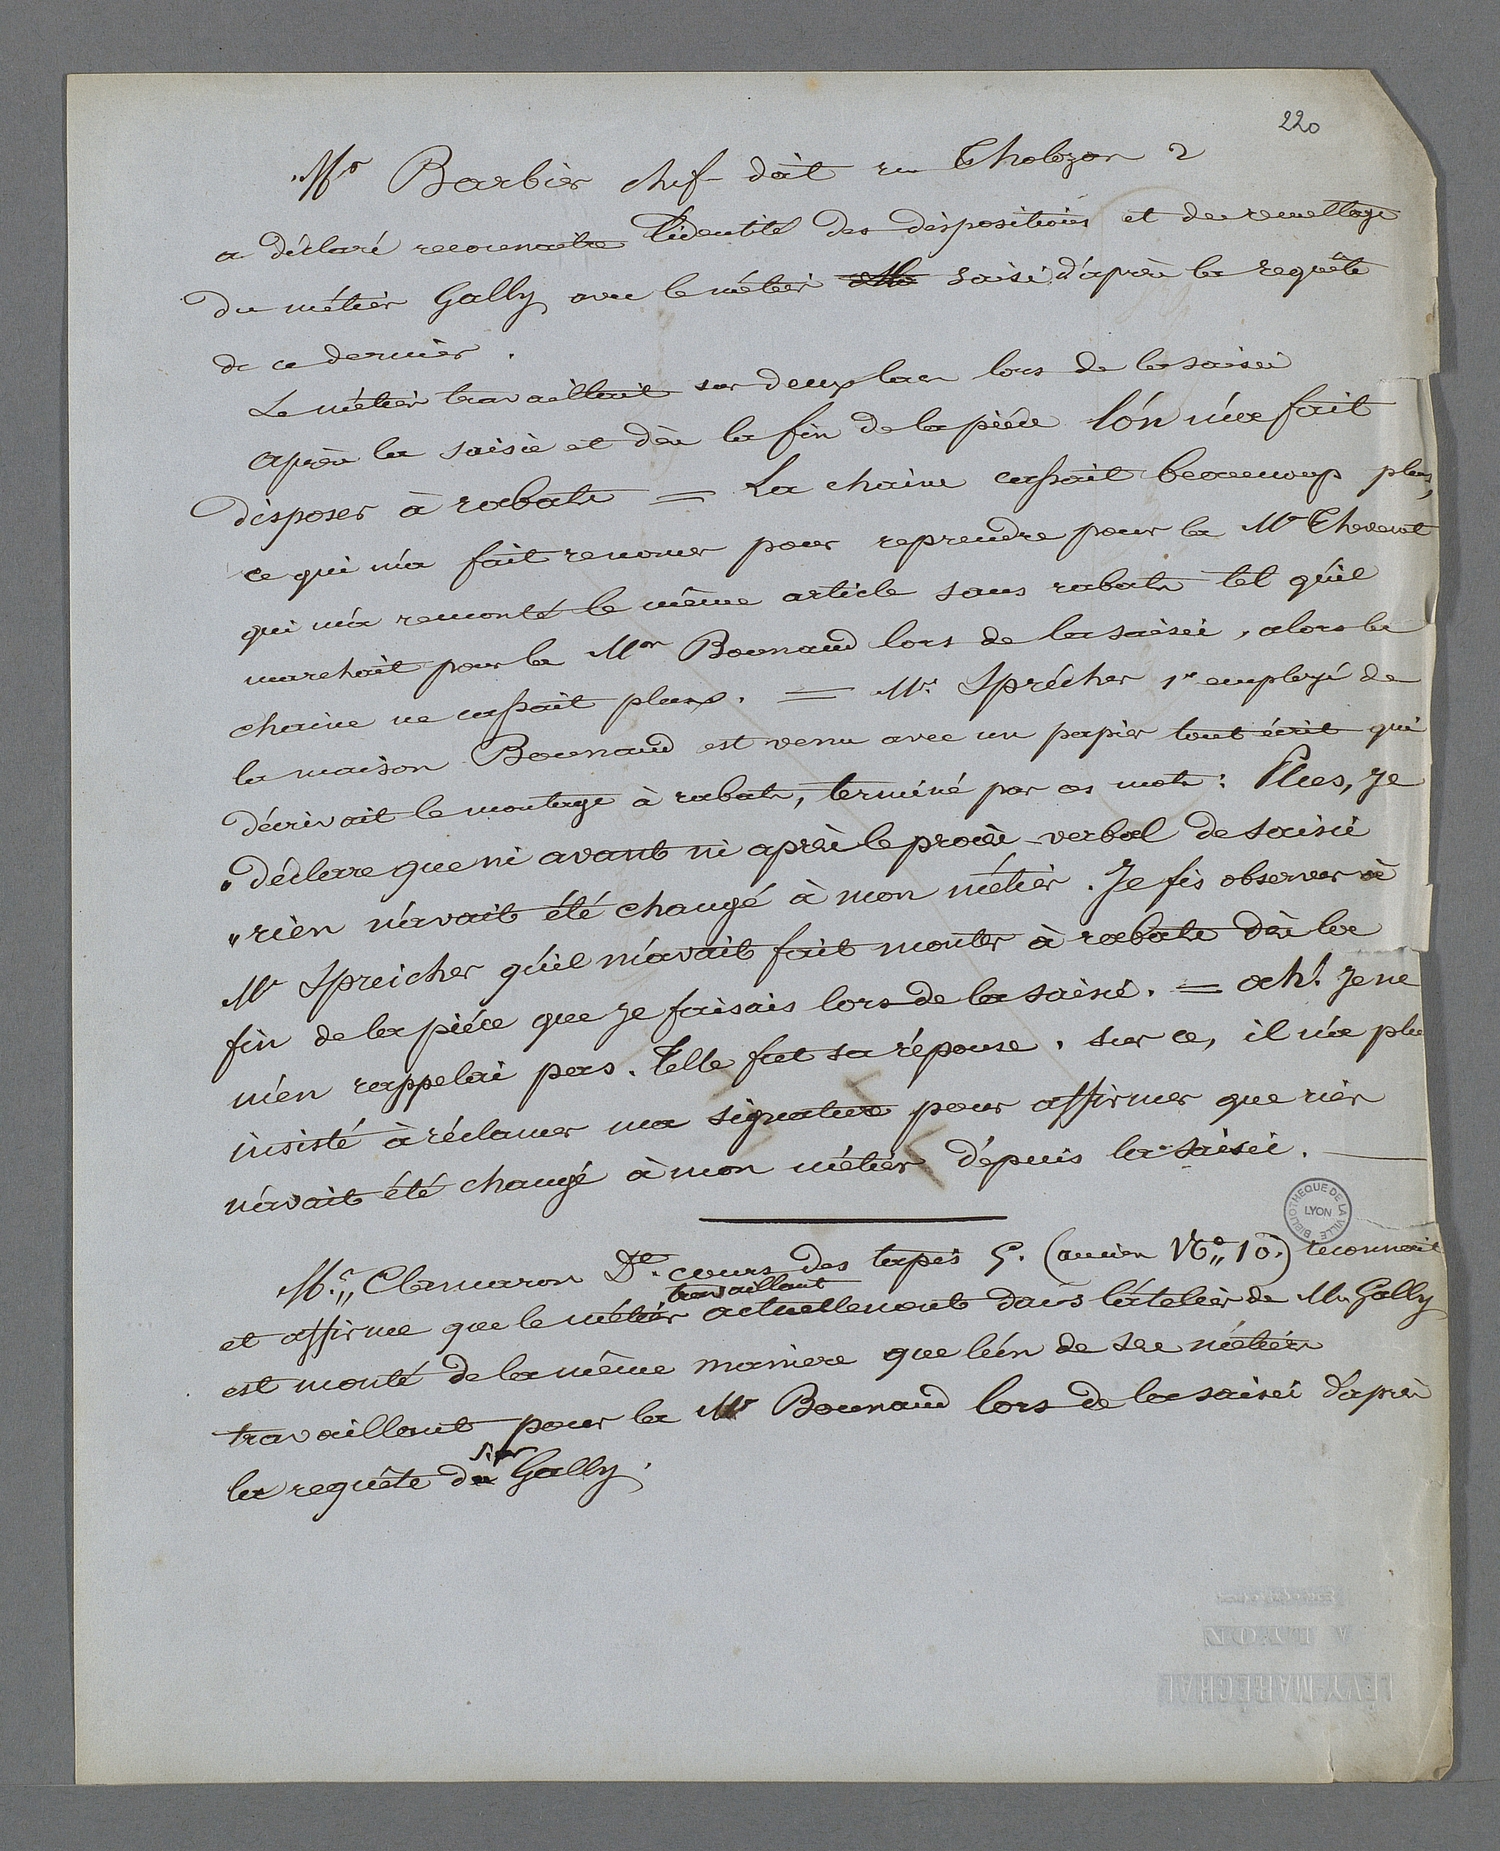 220
Mr Barbier chef d'at rue Tholozan 2
a déclaré reconnaître l'identité des dispositions et du remettage
du métier Gally avec le métier saisi d'après la requête
de ce dernier.
Le métier travaillait sur deux lacs lors de la saisie
après la saisie et dès la fin de la pièce l'on m'a fait
disposer à rabats = La chaine cassait beaucoup plus,
ce qui m'a fait renoncer pour reprendre pour la Mon Thevenet
qui m'a remonté le même article sans rabats tel qu'il
marchait pour la Mon Bonnaud lors de la saisie, alors la
chaine ne cassait plus. = Mr. Sprécher 1er employé de
la maison Bonnaud est venu avec un papier tout écrit qui
décrivait le montage à rabats, terminé par ces mots: Plus, je
" déclare que ni avant ni après le procès-verbal de saisie
" rien n'avait été changé à mon métier. Je fis observer à
Mr Spreicher qu'il m'avait fait monter à rabats dès la
fin de la pièce que je faisais lors de la saisie. = ah! Je ne
m'en rappelai pas. Telle fut sa réponse. sur ce, il n'a plus
insisté à réclamer ma signature pour affirmer que rien
n'avait été changé à mon métier dépuis la saisie.
Mr. Clamaron Dt. cours des tapis 5. (ancien No. 10.) reconnait
travaillant
et affirme que le métier actuellement dans l'atelier de Mr Gally
est monté de la même maniere que l'un de ses métiers
travaillant pour la Mon Bonnaud lors de la saisie d'après
la requête du Sieur Gally.
BIBLIOTHEQUE DE LA VILLE
LYON
A LYON
LÉVY-MARÉCHAL